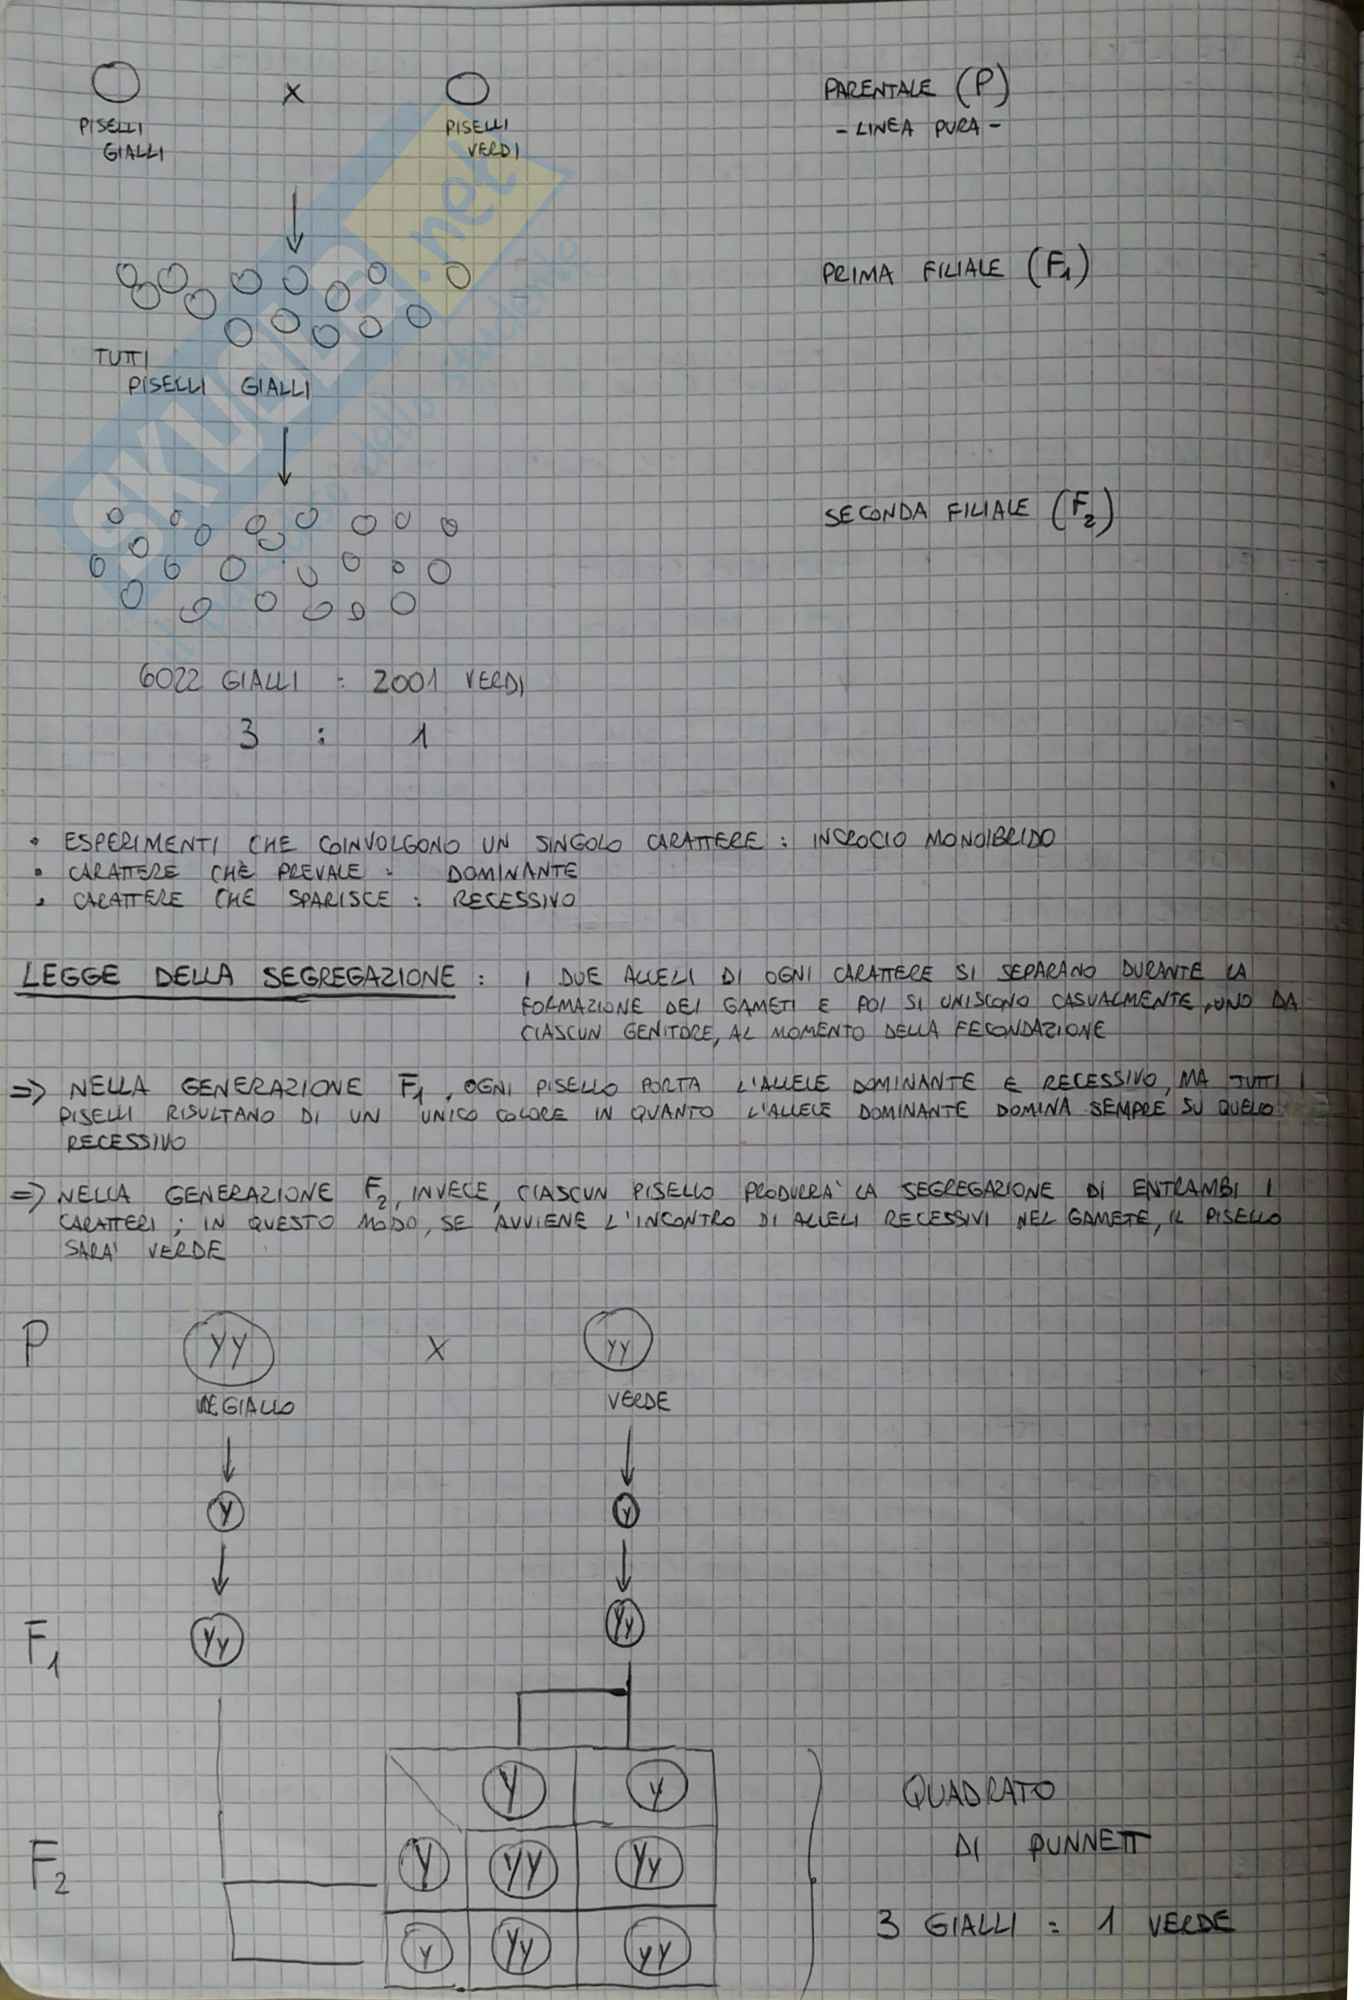 x
PISELLI
GIALLI
PISELLI
VERDI
PARENTALE (P)
- LINEA PURA -
PRIMA FILIALE (F1)
TUTTI
PISELLI GIALLI
SECONDA FILIALE (F2)
6022 GIALLI : 2001 VERDI
3 : 1
• ESPERIMENTI CHE COINVOLGONO UN SINGOLO CARATTERE : INCROCIO MONOIBRIDO
• CARATTERE CHE PREVALE : DOMINANTE
• CARATTERE CHE SPARISCE : RECESSIVO
LEGGE DELLA SEGREGAZIONE : I DUE ALLELI DI OGNI CARATTERE SI SEPARANO DURANTE LA
FORMAZIONE DEI GAMETI E POI SI UNISCONO CASUALMENTE, UNO DA
CIASCUN GENITORE, AL MOMENTO DELLA FECONDAZIONE
=> NELLA GENERAZIONE F1, OGNI PISELLO PORTA L'ALLELE DOMINANTE E RECESSIVO, MA TUTTI I
PISELLI RISULTANO DI UN UNICO COLORE IN QUANTO L'ALLELE DOMINANTE DOMINA SEMPRE SU QUELLO
RECESSIVO
=> NELLA GENERAZIONE F2, INVECE, CIASCUN PISELLO PRODURRA' LA SEGREGAZIONE DI ENTRAMBI I
CARATTERI ; IN QUESTO MODO, SE AVVIENE L'INCONTRO DI ALLELI RECESSIVI NEL GAMETE, IL PISELLO
SARA' VERDE
P YY x yy
GIALLO VERDE
Y y
F1 Yy Yy
Y y
F2 Y YY Yy
y Yy yy
QUADRATO
DI PUNNETT
3 GIALLI : 1 VERDE
SKUOLA.net